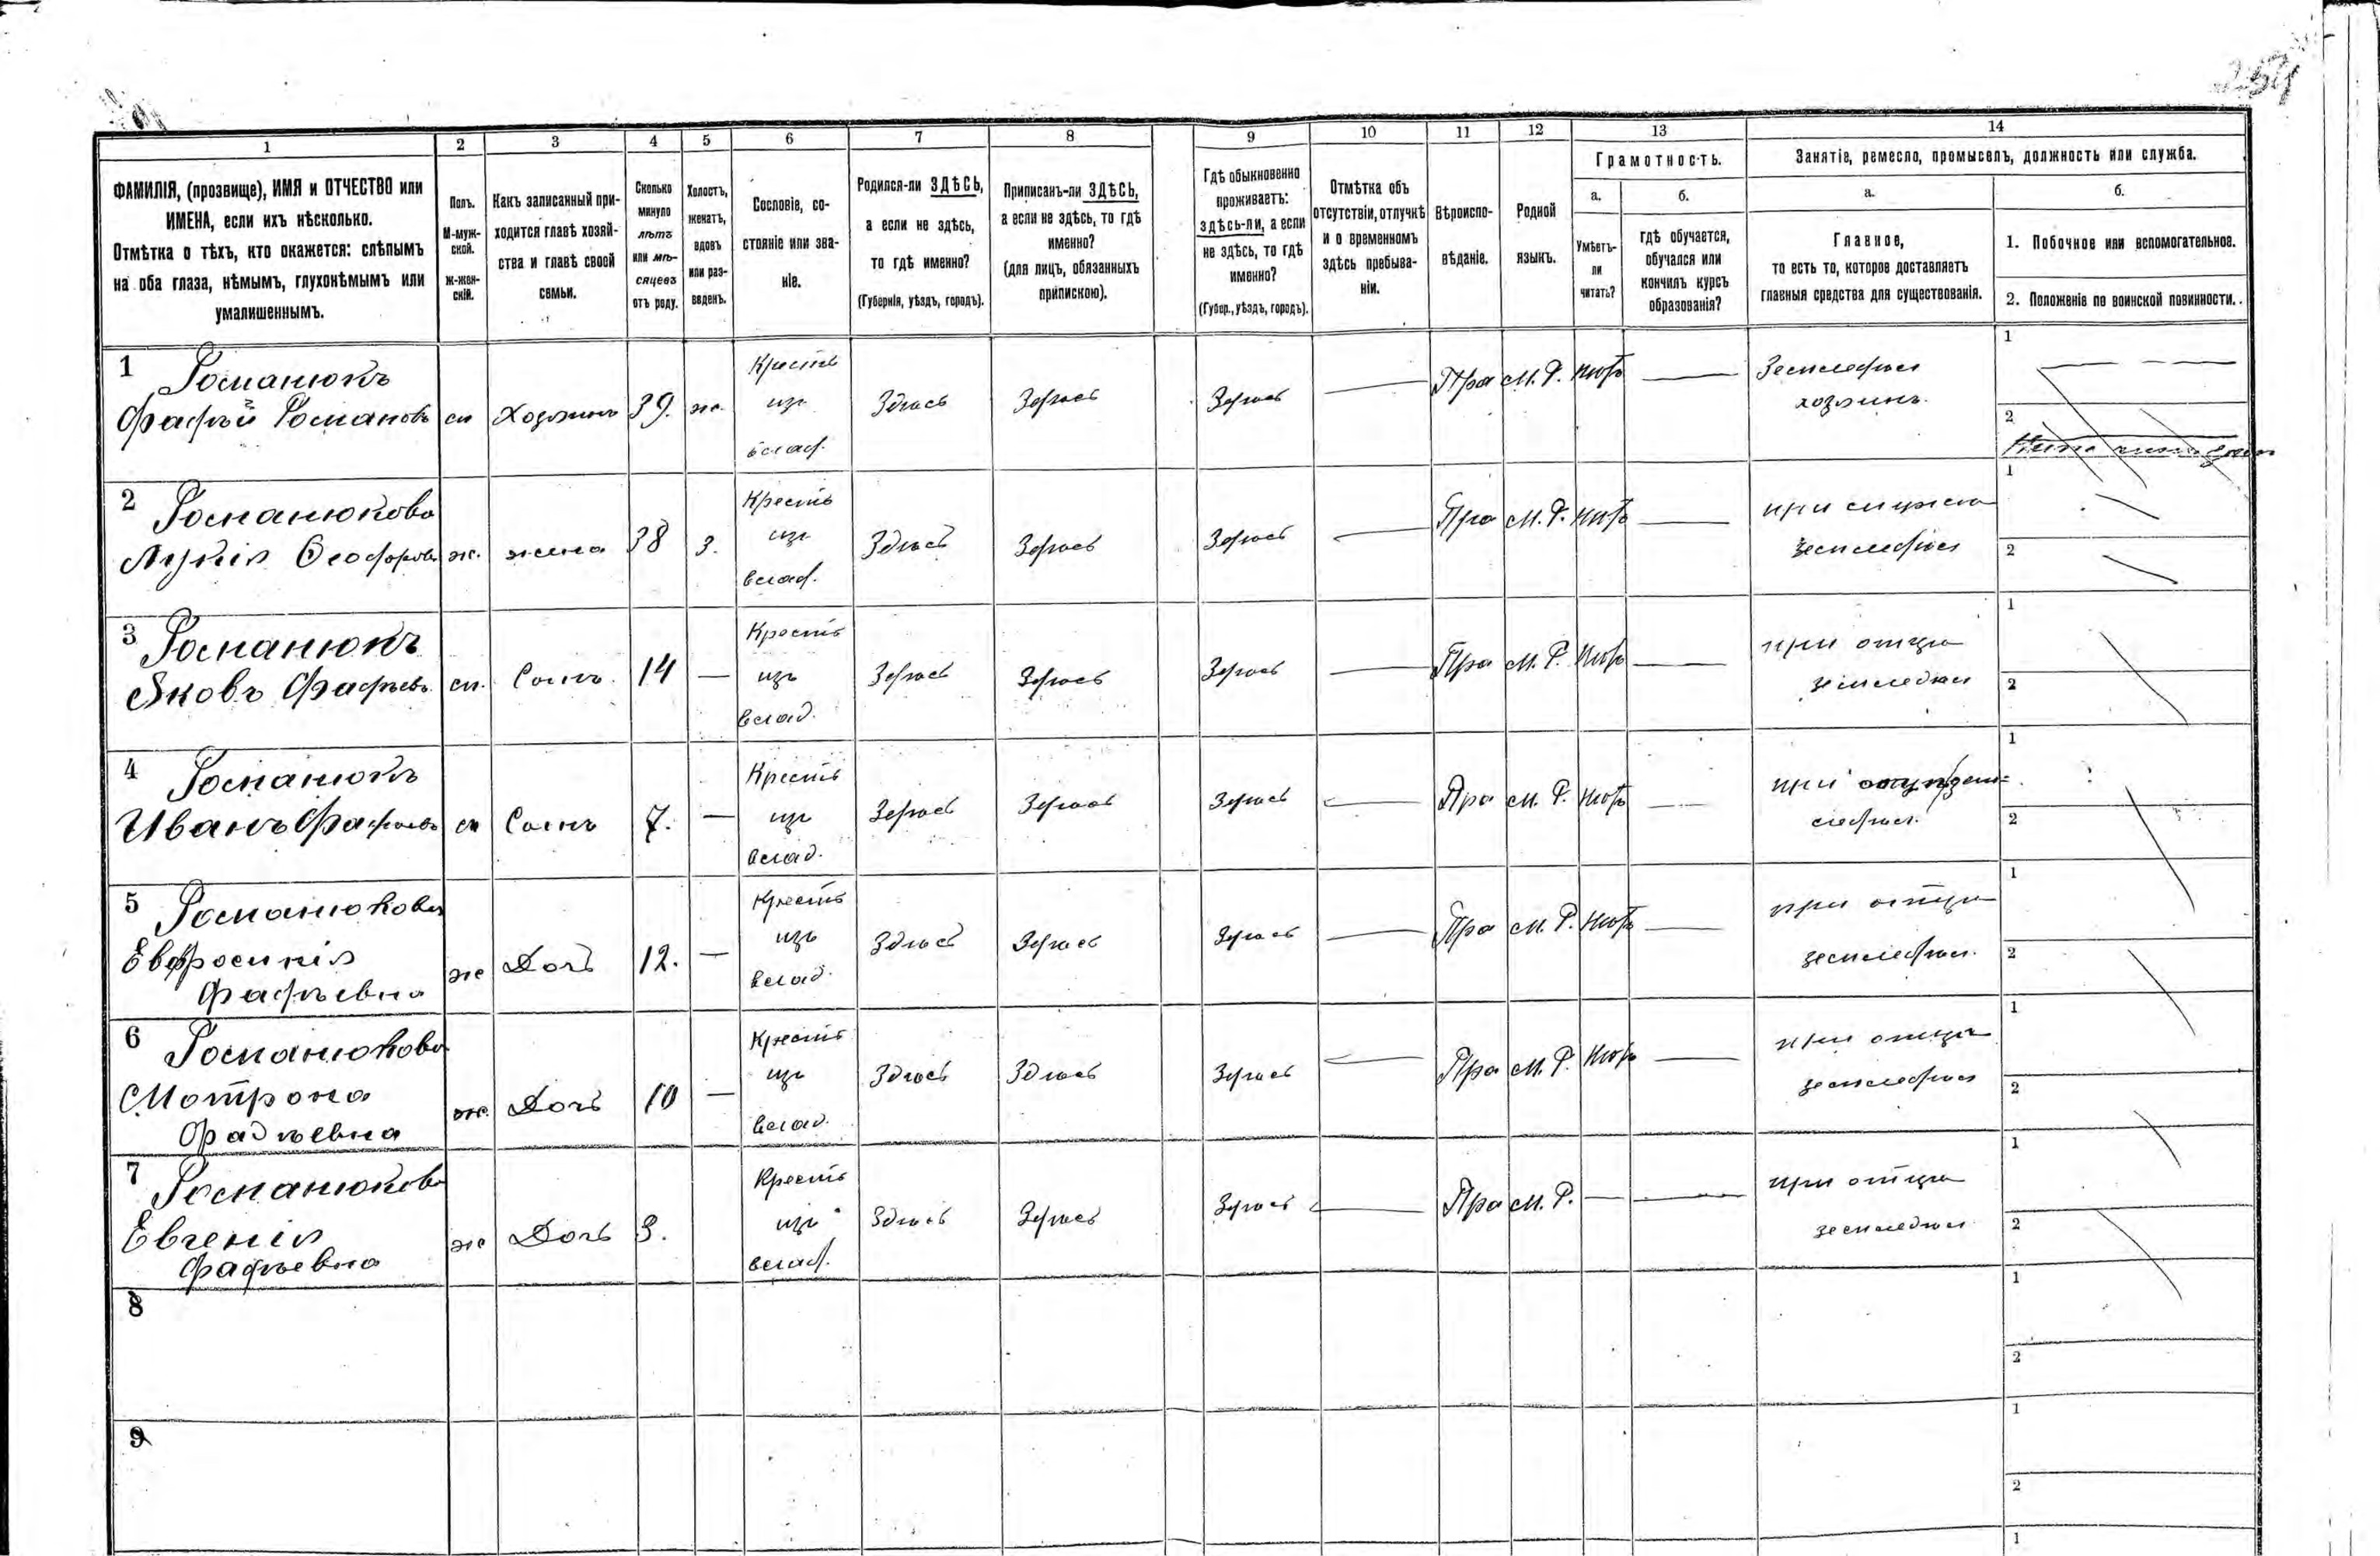 254
1 2 3 4 5 6 7 8 9 10 11 12 13 14
ФАМИЛІЯ, (прозвище), ИМЯ и ОТЧЕСТВО или
ИМЕНА, если ихъ нѣсколько.
Отмѣтка о тѣхъ, кто окажется: слѣпымъ
на оба глаза, нѣмымъ, глухонѣмымъ или
умалишеннымъ.
Полъ.
М-муж-
ской.
Ж-жен-
скій.
Какъ записанный при-
ходится главѣ хозяй-
ства и главѣ своей
семьи.
Сколько
минуло
лѣтъ
или мѣ-
сяцевъ
отъ роду.
Холостъ,
женатъ,
вдовъ
или раз-
веденъ.
Сословіе, со-
стояніе или зва-
ніе.
Родился-ли ЗДѢСЬ,
а если не здѣсь,
то гдѣ именно?
(Губернія, уѣздъ, городъ).
Приписанъ-ли ЗДѢСЬ,
а если не здѣсь, то гдѣ
именно?
(для лицъ, обязанныхъ
припискою).
Гдѣ обыкновенно
проживаетъ:
здѣсь-ли, а если
не здѣсь, то гдѣ
именно?
(Губер., уѣздъ, городъ).
Отмѣтка объ
отсутствіи, отлучкѣ
и о временномъ
здѣсь пребыва-
ніи.
Вѣроиспо-
вѣданіе.
Родной
языкъ.
Грамотность.
а.
Умѣетъ-
ли
читать?
б.
гдѣ обучается,
обучался или
кончилъ курсъ
образованія?
Занятіе, ремесло, промыселъ, должность или служба.
а.
Главное,
то есть то, которое доставляетъ
главныя средства для существованія.
б.
1. Побочное или вспомогательное.
2. Положеніе по воинской повинности.
1 Романюкъ
Фадѣй Романовъ м Хозяинъ 39. ж. Кресть изъ влад. Здѣсь Здѣсь Здѣсь — Пра М.Р. нѣтъ — Земледѣл хозяинъ 1 — — 2
2 Романюкова
Лукія Ѳеодоров ж. жена 38 з. Кресть изъ влад. Здѣсь Здѣсь Здѣсь — Пра М.Р. нѣтъ — при мужѣ земледѣл 1 2
3 Романюкъ
Яковъ Фадѣевъ м. Сынъ 14 — Кресть изъ влад. Здѣсь Здѣсь Здѣсь — Пра М.Р. нѣтъ — при отцѣ земледѣл 1 2
4 Романюкъ
Иванъ Фадѣевъ м Сынъ 7. — Кресть изъ влад. Здѣсь Здѣсь Здѣсь — Пра М.Р. нѣтъ — при отцѣ зем= ледѣл. 1 2
5 Романюкова
Евфросинія
Фадѣевна ж Дочь 12. — Кресть изъ влад. Здѣсь Здѣсь Здѣсь — Пра М.Р. нѣтъ — при отцѣ земледѣл. 1 2
6 Романюкова
Мотрона
Фадѣевна ж. Дочь 10 — Кресть изъ влад. Здѣсь Здѣсь Здѣсь — Пра М.Р. нѣтъ — при отцѣ земледѣл 1 2
7 Романюкова
Евгенія
Фадѣевна ж Дочь 3. Кресть изъ влад. Здѣсь Здѣсь Здѣсь — Пра М.Р. — — при отцѣ земледѣл 1 2
8 1 2
9 1 2
1